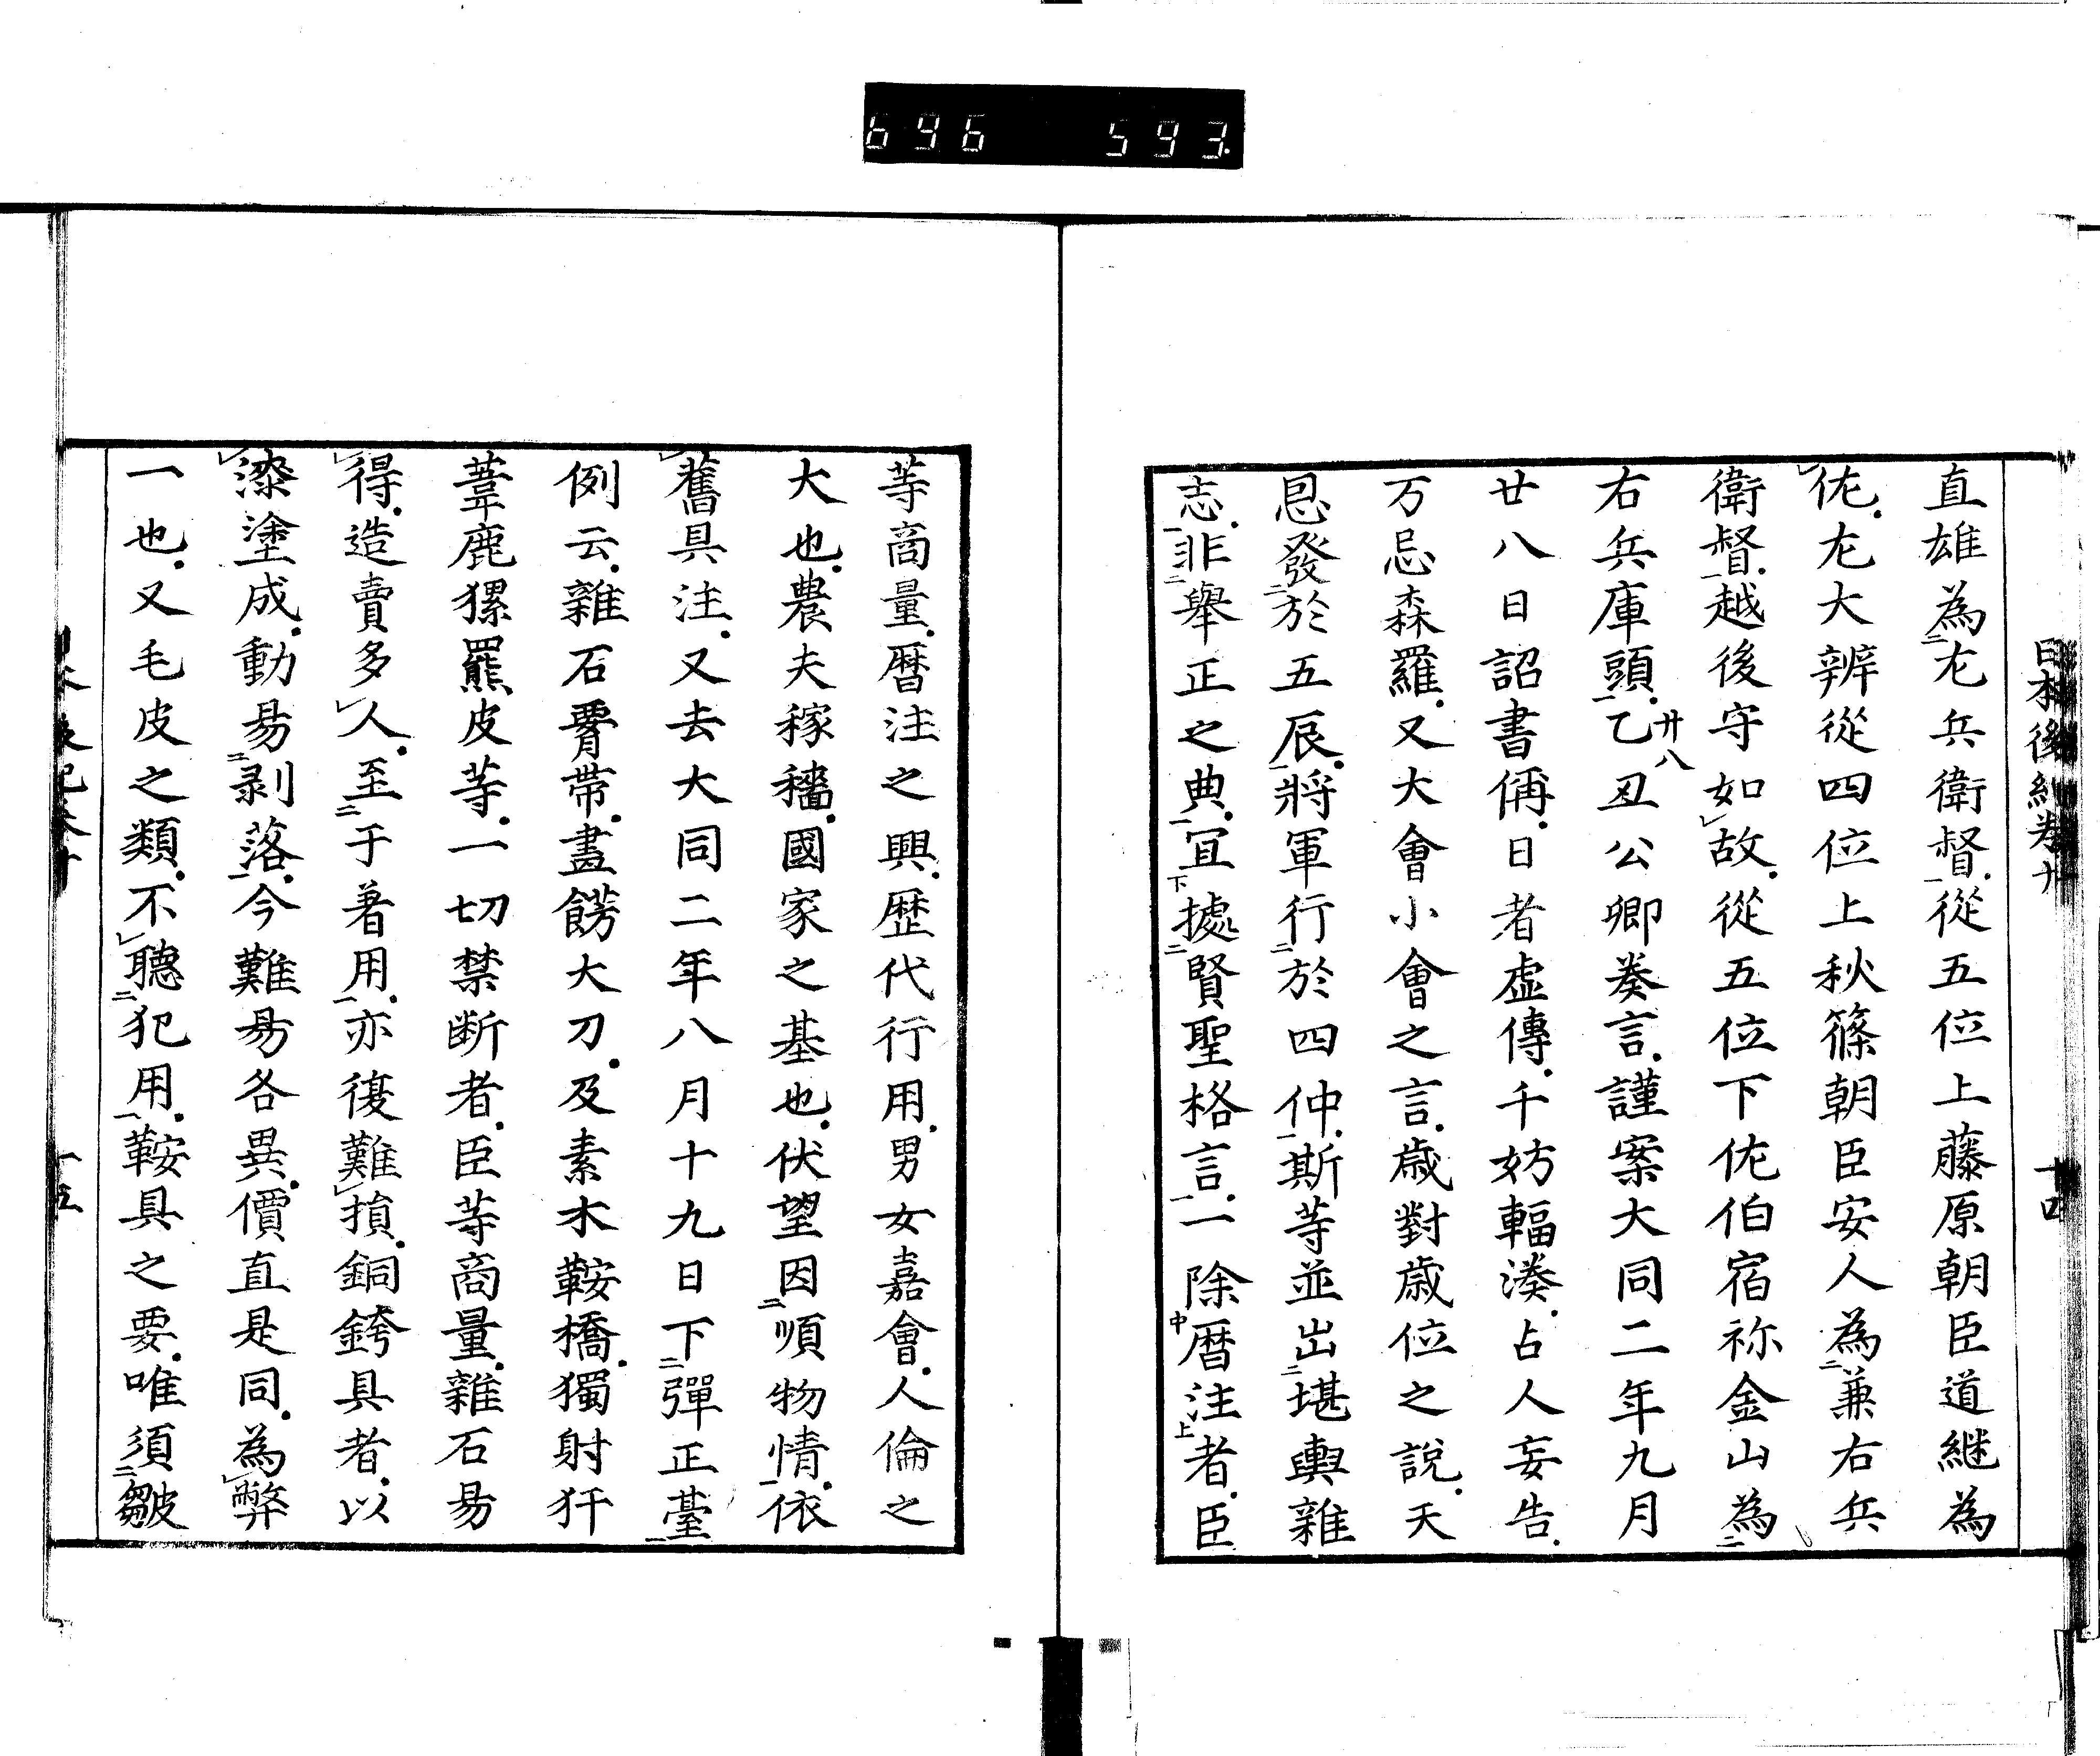 696 593
日本後紀卷廿 十四
直雄為左兵衛督從五位上藤原朝臣道継為
佐左大辨從四位上秋篠朝臣安人為兼右兵
衛督越後守如故從五位下佐伯宿祢金山為
右兵庫頭乙丑公卿奏言謹案大同二年九月
廿八
廿八日詔書偁日者虚傳千妨輻湊占人妄告
万忌森羅又大會小會之言歳對歳位之說天
恩發於五辰將軍行於四仲斯等並出堪輿雜
志非舉正之典宜據賢聖格言一除暦注者臣
等商量暦注之興歴代行用男女嘉會人倫之
大也農夫稼穡國家之基也伏望因順物情依
舊具注又去大同二年八月十九日下彈正臺
例云雜石腰帶畫餝大刀及素木鞍橋獨射犴
葦鹿猱羆皮等一切禁断者臣等商量雜石易
得造賣多人至于著用亦復難損銅銙具者以
漆塗成動易剥落今難易各異價直是同為弊
一也又毛皮之類不聽犯用鞍具之要唯須皺
十五